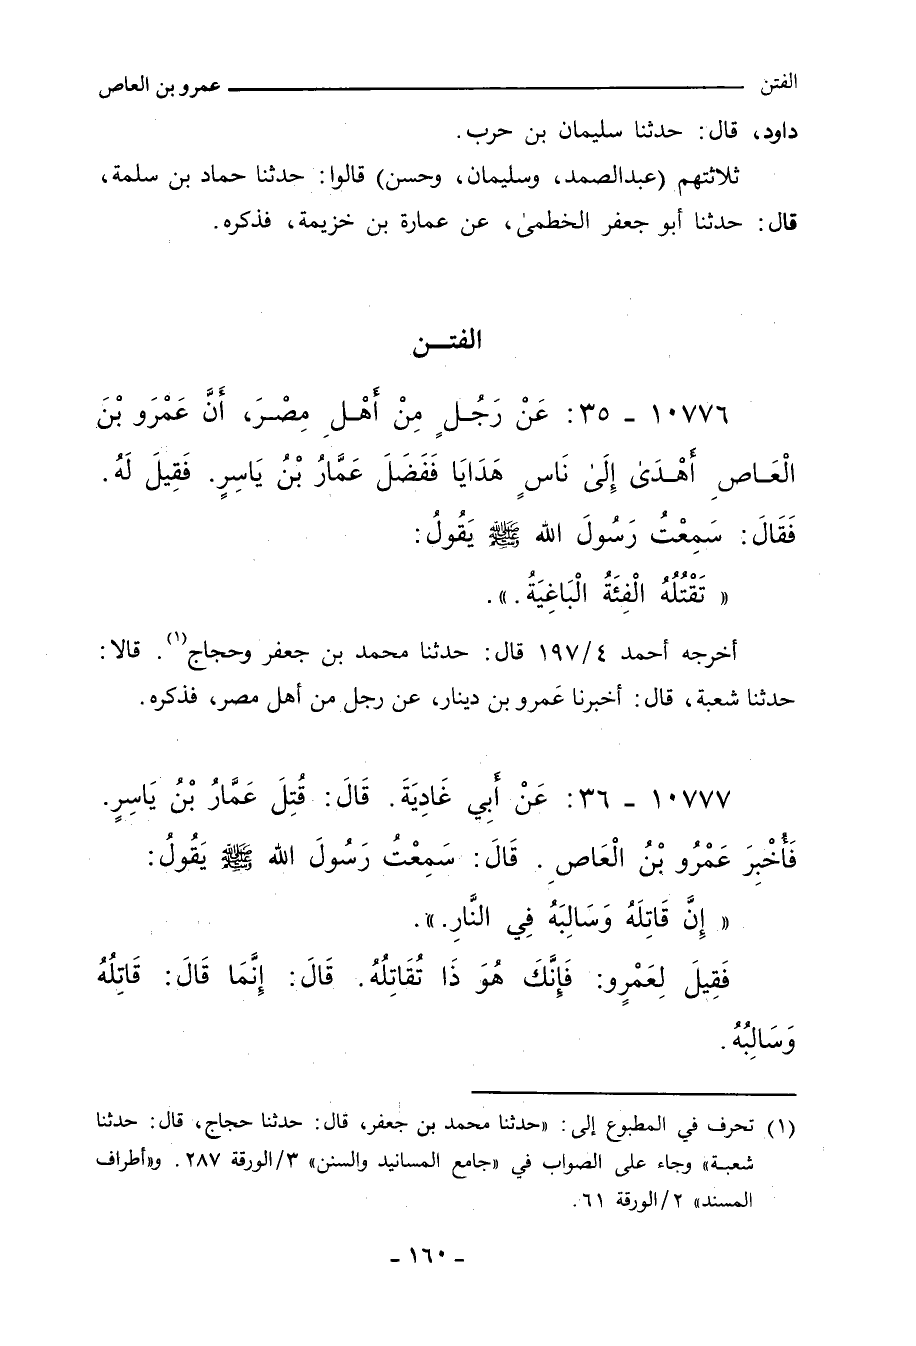 الفتن عمرو بن العاص
داود، قال: حدثنا سليمان بن حرب.
ثلاثتهم (عبدالصمد، وسليمان، وحسن) قالوا: حدثنا حماد بن سلمة،
قال: حدثنا أبو جعفر الخطمىٰ، عن عمارة بن خزيمة، فذكره.
الفتــن
١٠٧٧٦ ـ ٣٥: عَنْ رَجُلٍ مِنْ أَهْلِ مِصْرَ، أَنَّ عَمْرَو بْنَ
الْعَاصِ أَهْدَىٰ إِلَىٰ نَاسٍ هَدَايَا فَفَضَلَ عَمَّارُ بْنُ يَاسِرٍ. فَقِيلَ لَهُ.
فَقَالَ: سَمِعْتُ رَسُولَ الله ﷺ يَقُولُ:
« تَقْتُلُهُ الْفِئَةُ الْبَاغِيَةُ.».
أخرجه أحمد ١٩٧/٤ قال: حدثنا محمد بن جعفر وحجاج(١). قالا:
حدثنا شعبة، قال: أخبرنا عَمرو بن دينار، عن رجل من أهل مصر، فذكره.
١٠٧٧٧ ـ ٣٦: عَنْ أَبِي غَادِيَةَ. قَالَ: قُتِلَ عَمَّارُ بْنُ يَاسِرٍ.
فَأُخْبِرَ عَمْرُو بْنُ الْعَاصِ. قَالَ: سَمِعْتُ رَسُولَ الله ﷺ يَقُولُ:
« إِنَّ قَاتِلَهُ وَسَالِبَهُ فِي النَّارِ.».
فَقِيلَ لِعَمْرٍو: فَإِنَّكَ هُوَ ذَا تُقَاتِلُهُ. قَالَ: إِنَّمَا قَالَ: قَاتِلُهُ
وَسَالِبُهُ.
(١) تحرف في المطبوع إلى: «حدثنا محمد بن جعفر، قال: حدثنا حجاج، قال: حدثنا
شعبة» وجاء على الصواب في «جامع المسانيد والسنن» ٣/الورقة ٢٨٧. و«أطراف
المسند» ٢/الورقة ٦١.
ـ ١٦٠ ـ